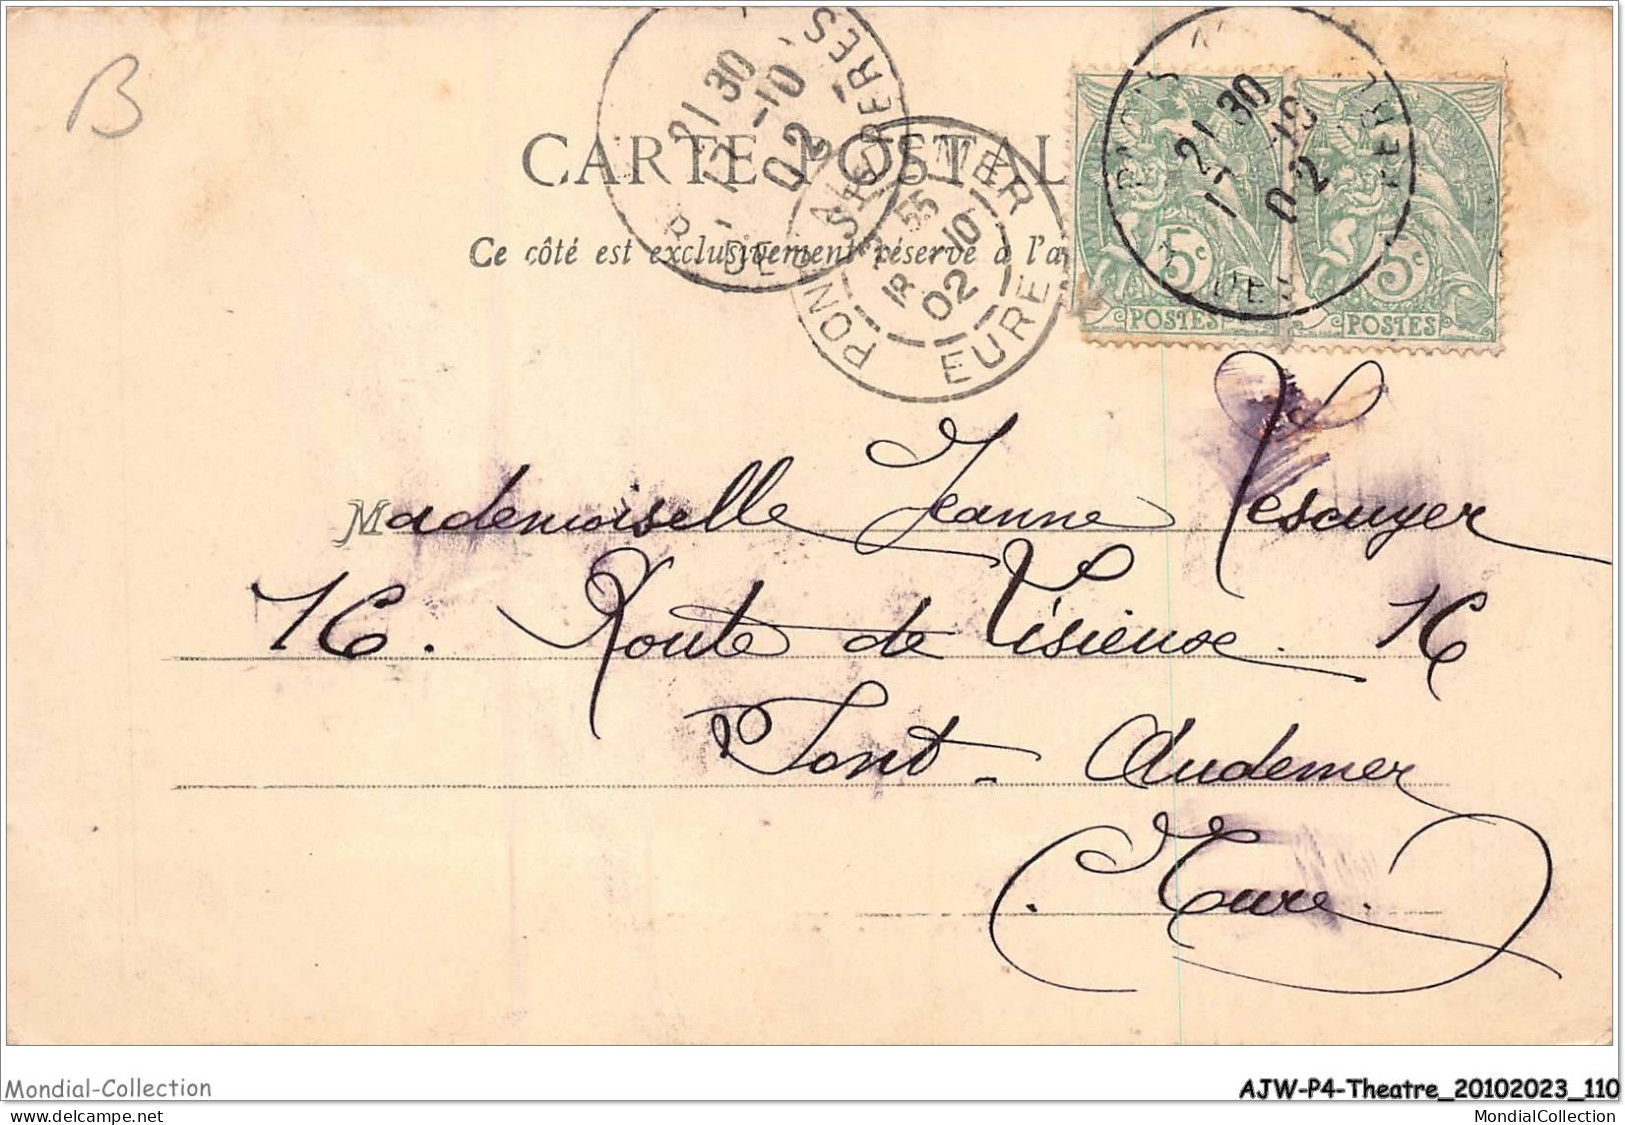 B
CARTE POSTAL
Ce côté est exclusivement réservé à l'a
21 30
-10
02
R. DES
21 30
-10
02
PONT-AUDEMER
55
10
02
EURE
5c
5c
POSTES
POSTES
Mademoiselle Jeanne Lescuyer
16. Route de Lisieux. 16
Pont-Audemer
Eure.
Mondial-Collection
AJW-P4-Theatre_20102023_110
www.delcampe.net
MondialCollection